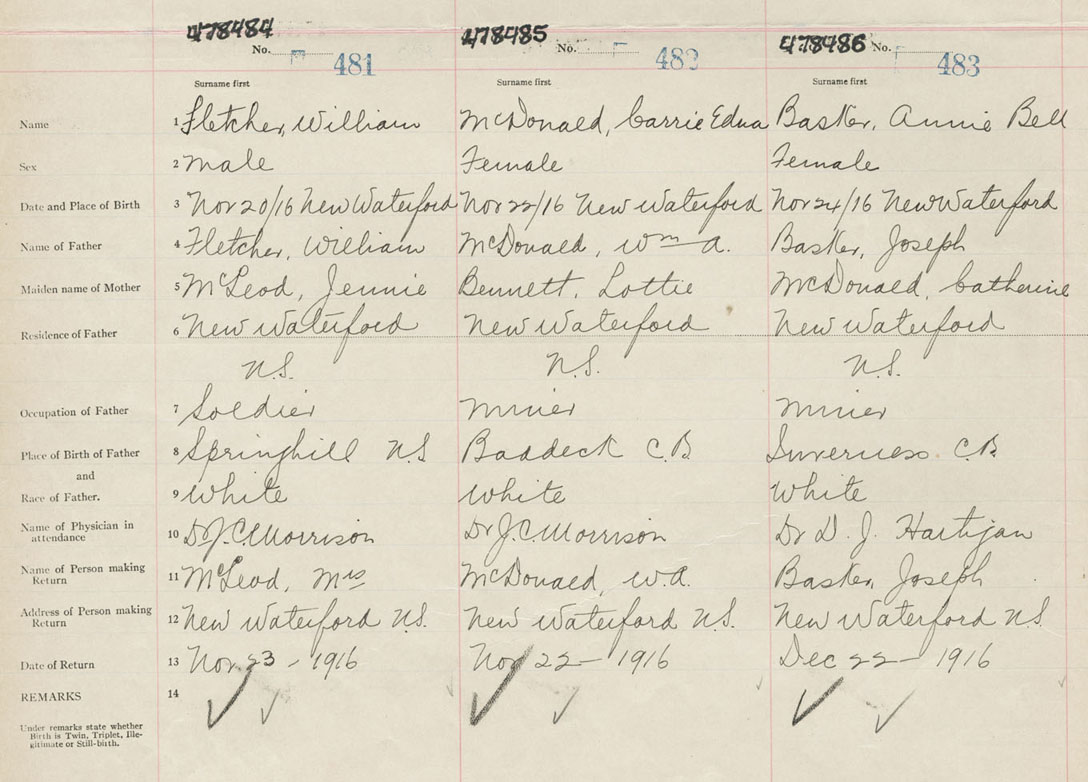 478484 478485 478486
No. F 481 No. F 482 No. F 483
Surname first Surname first Surname first
Name 1 Fletcher, William McDonald, Carrie Edna Basker, Annie Bell
Sex 2 Male Female Female
Date and Place of Birth 3 Nov 20/16 New Waterford Nov 22/16 New Waterford Nov 24/16 New Waterford
Name of Father 4 Fletcher, William McDonald, Wm A. Basker, Joseph
Maiden name of Mother 5 McLeod, Jennie Bennett, Lottie McDonald, Catherine
Residence of Father 6 New Waterford New Waterford New Waterford
N.S. N.S. N.S.
Occupation of Father 7 Soldier Miner Miner
Place of Birth of Father 8 Springhill N.S Baddeck C.B Inverness C.B.
and
Race of Father. 9 White White White
Name of Physician in
attendance 10 Dr J.C. Morrison Dr J.C. Morrison Dr D. J. Hartigan
Name of Person making
Return 11 McLeod, Mrs McDonald, W.A. Basker, Joseph
Address of Person making
Return 12 New Waterford N.S. New Waterford N.S. New Waterford N.S.
Date of Return 13 Nov 23 - 1916 Nov 22 - 1916 Dec 22 - 1916
REMARKS 14
Under remarks state whether
Birth is Twin, Triplet, Ille-
gitimate or Still-birth.